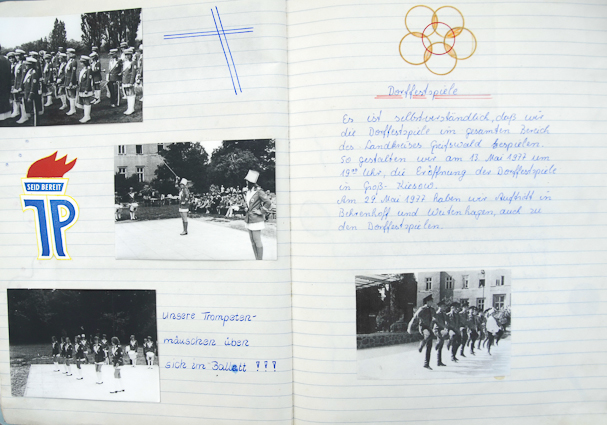 SEID BEREIT
JP
unsere Trompeten-
mäuschen üben
sich im Ballett !!!
Dorffestspiele
Es ist selbstverständlich, daß wir
die Dorffestspiele im gesamten Bereich
des Landkreises Greifswald bespielen.
So gestalten wir am 17. Mai 1977 um
19⁰⁰ Uhr, die Eröffnung der Dorffestspiele
in Groß-Kiesow.
Am 29. Mai 1977 haben wir Auftritt in
Behrenhoff und Weitenhagen, auch zu
den Dorffestspielen.